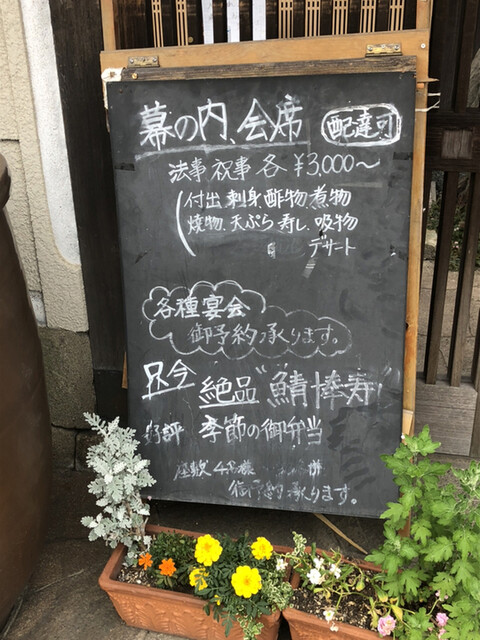 幕の内、会席 配達可
法事 祝事 各 ¥3,000〜
付出 刺身 酢物、煮物
焼物、天ぷら 寿し、吸物
デザート
各種宴会
御予約承ります。
只今 絶品"鯖棒寿"
好評 季節の御弁当
座敷 4名様
御予約承ります。